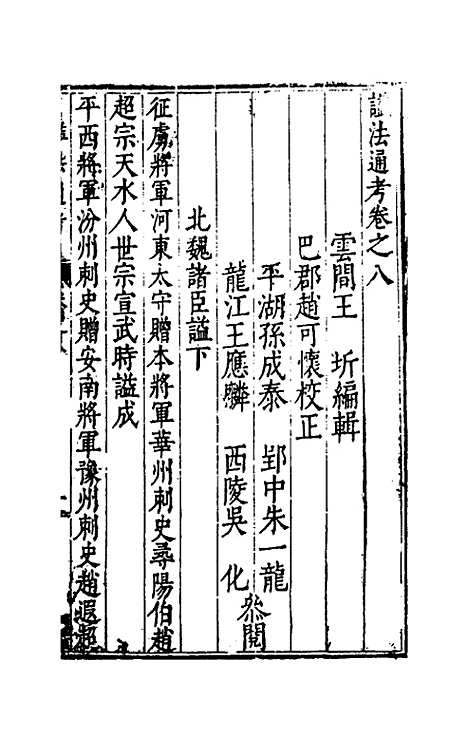 諡法通考卷之八
雲間王　圻編輯
巴郡趙可懷校正
平湖孫成泰　郢中朱一龍
龍江王應麟　西陵吳　化
叅閱
北魏諸臣謚下
征虜將軍河東太守贈本將軍華州刺史尋陽伯趙
超宗天水人世宗宣武時謚成
平西將軍汾州刺史贈安南將軍豫州刺史趙遐超